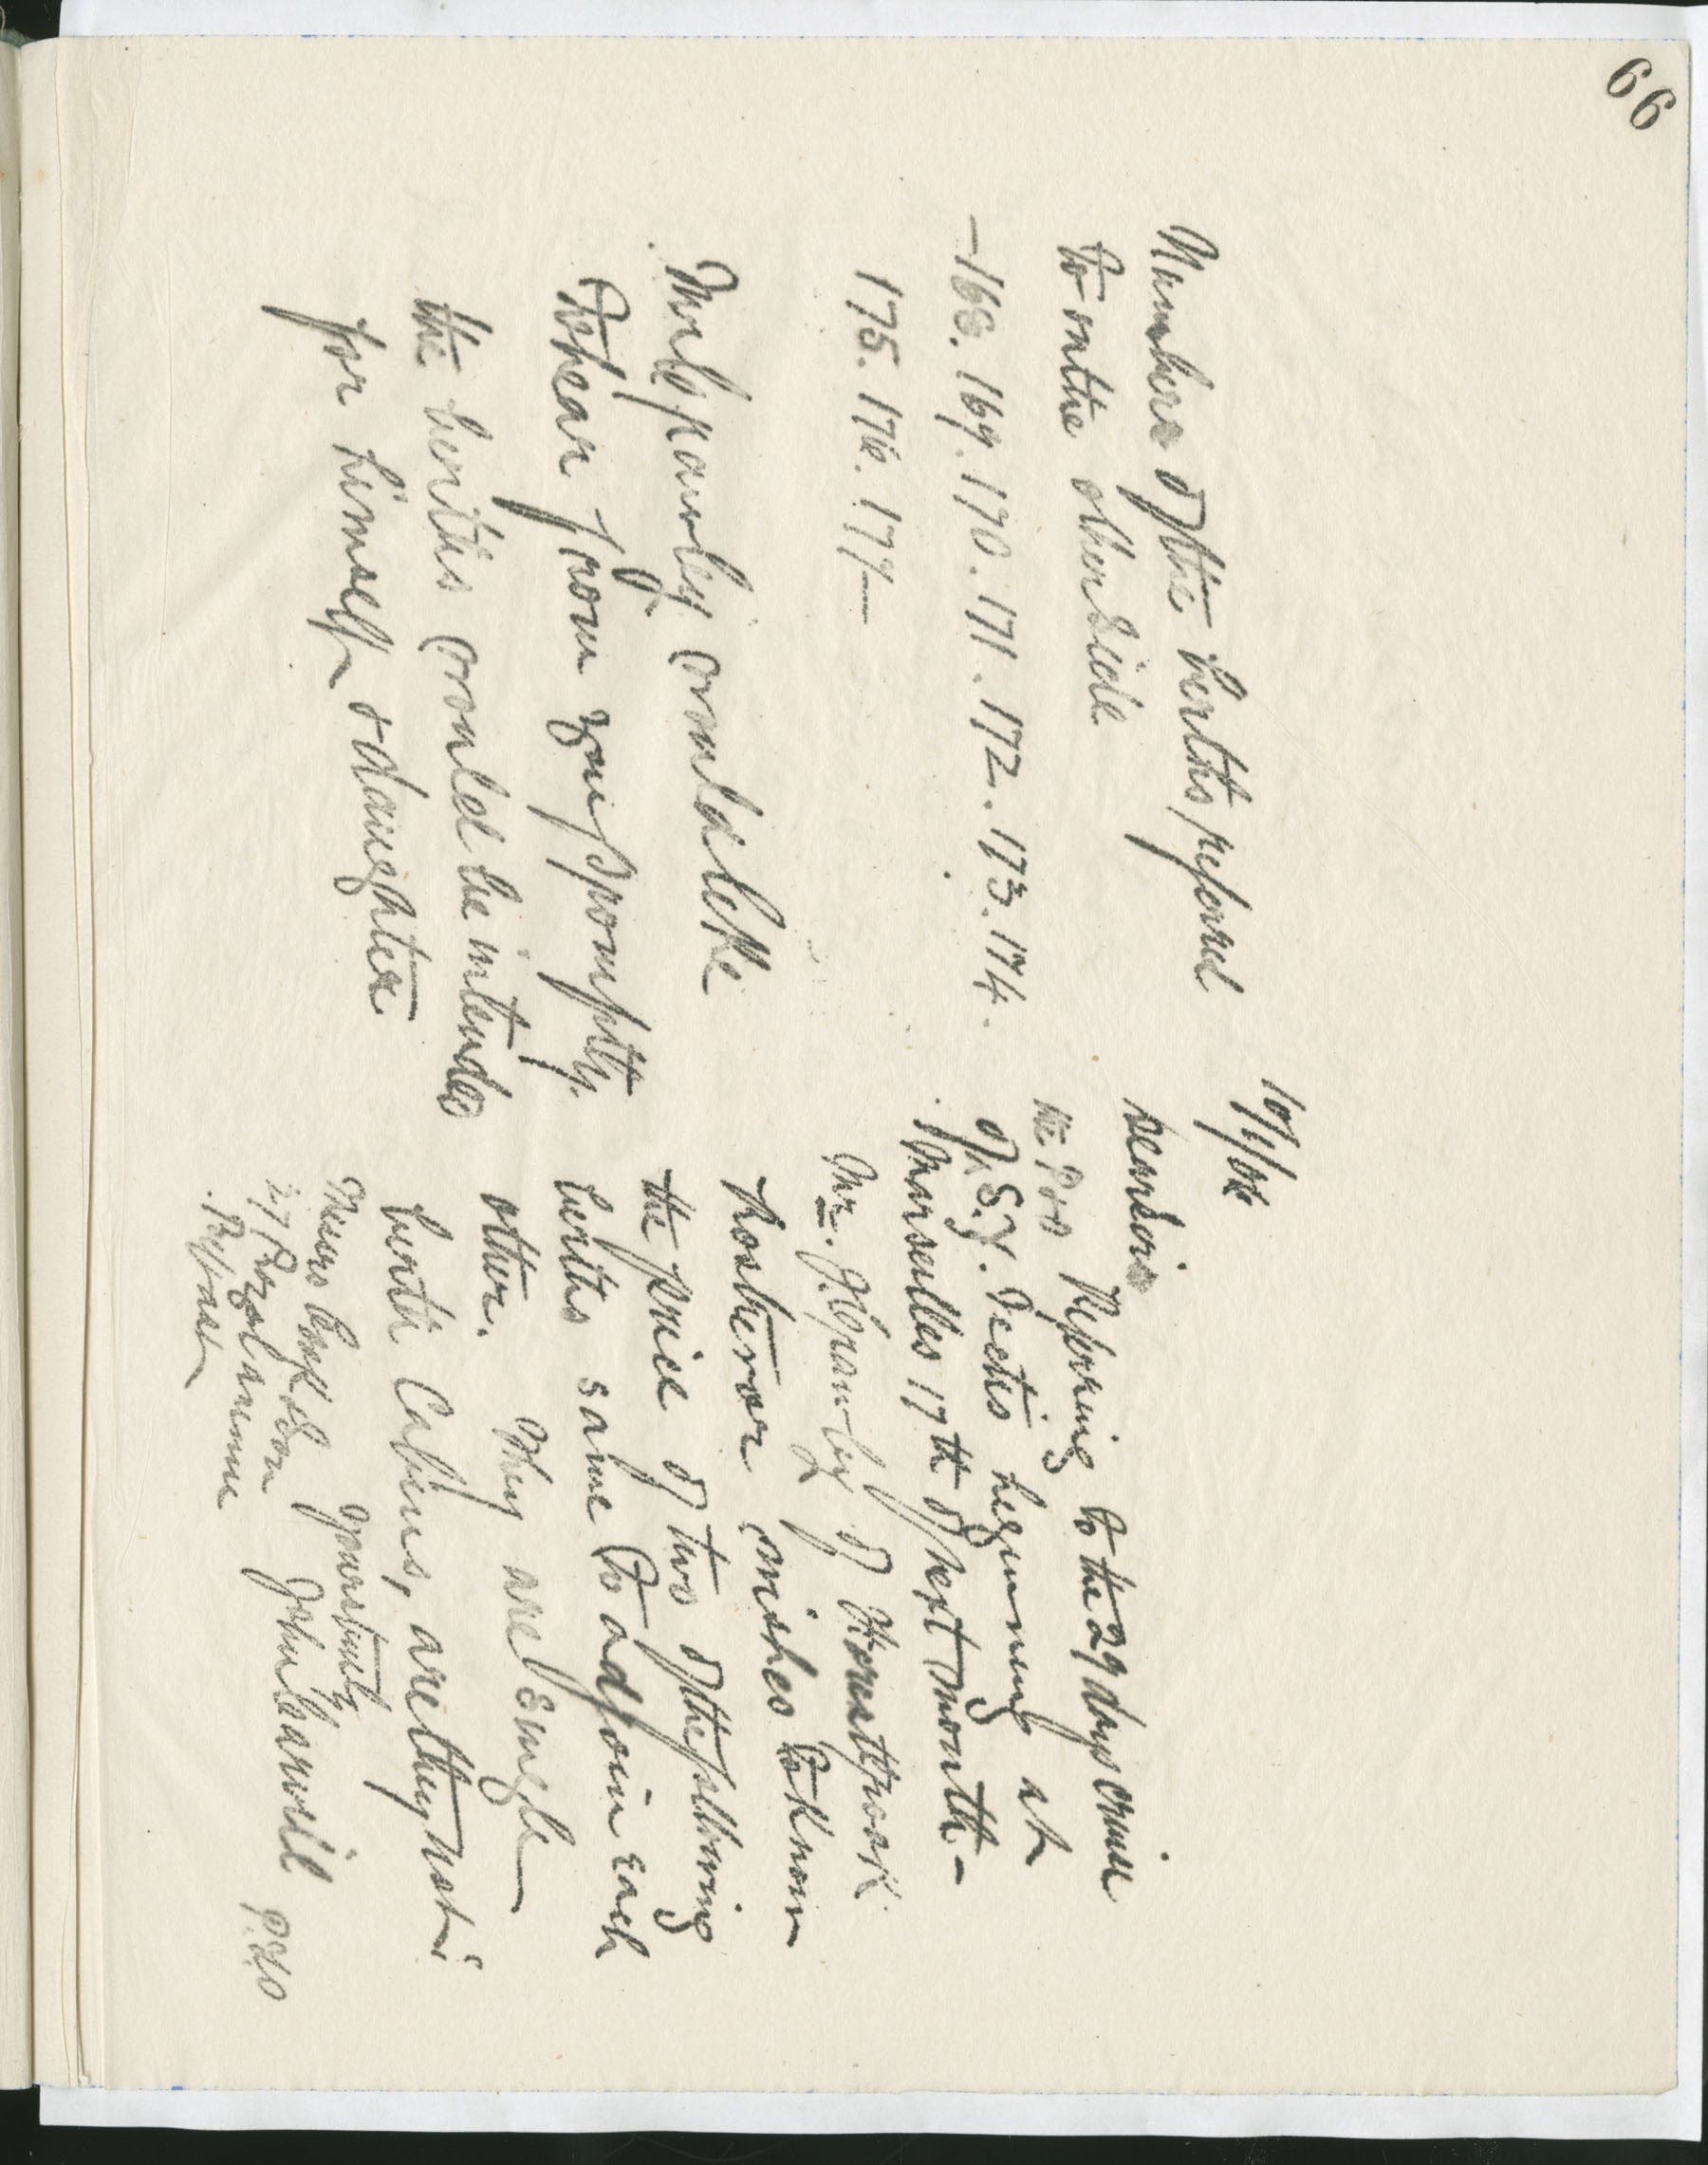 66
10/1/06
Dear Sirs
Referring to the 29 days cruise
the P & O
of S.Y. Vectis beginning at
Marseilles 17th of next month -
Mr. Gransby of
Rostrevor wishes to know
the price of two of the following
berths same to adjoin each
other. They are single
berth Cabins, are they not?
Messrs Cook & Son Yours truly
27 Royal Avenue John
Belfast P.T.O
Numbers of the berths referred
to on the other side
- 168. 169. 170. 171. 172. 173. 174.
175. 176. 177 -
would like
to hear from you promptly.
the berths would be intended
for himself & daughter